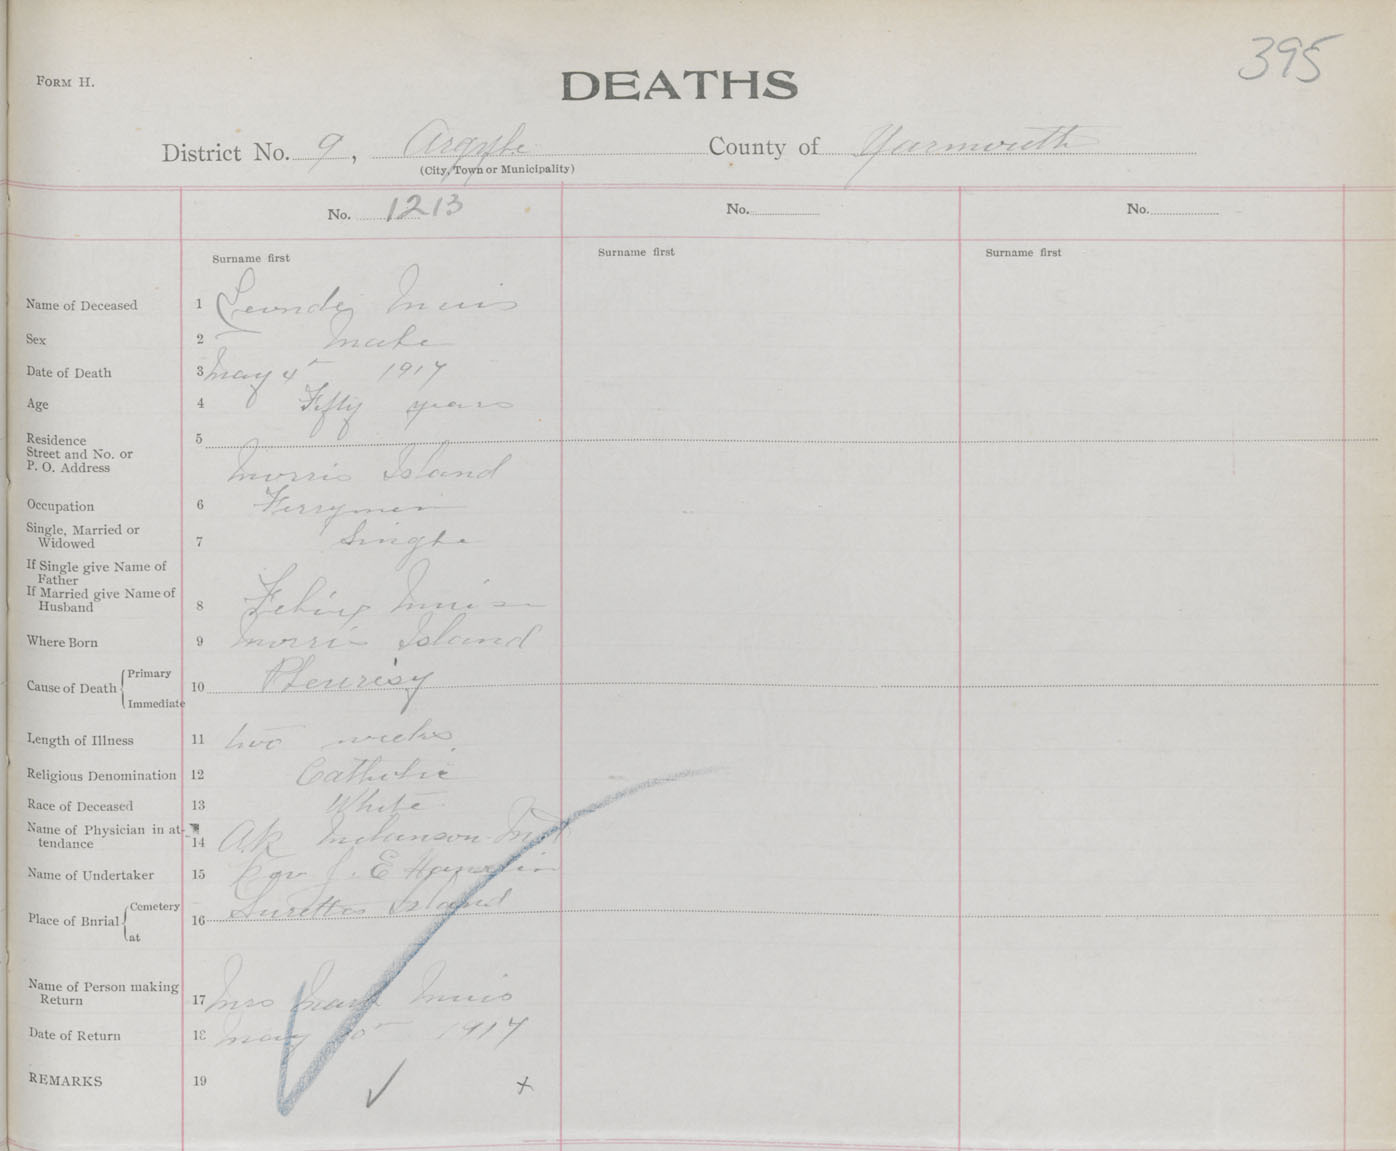 395
FORM H.
DEATHS
District No. 9, Argyle County of Yarmouth
(City, Town or Municipality)
No. 1213 No. No.
Surname first Surname first Surname first
Name of Deceased 1 Muis
Sex 2 Male
Date of Death 3 May 4th 1917
Age 4 Fifty years
Residence 5
Street and No. or
P. O. Address Morris Island
Occupation 6 Ferryman
Single, Married or
Widowed 7 Single
If Single give Name of
Father
If Married give Name of
Husband 8 Muise
Where Born 9 Morris Island
Cause of Death Primary 10 Pleurisy
Immediate
Length of Illness 11 two weeks
Religious Denomination 12 Catholic
Race of Deceased 13 White
Name of Physician in at-
tendance 14 A.R. Melanson M.D
Name of Undertaker 15 J. E
Place of Bnrial Cemetery 16 Surettes Island
at
Name of Person making
Return 17 Mrs Mark Muis
Date of Return 18 May 1917
REMARKS 19